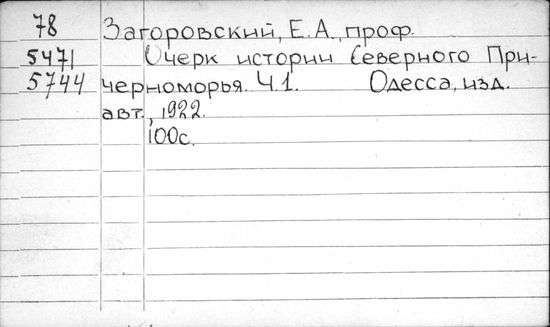 78 Загоровский, Е.А., проф.
5471 Очерк истории Северного При-
5744 черноморья. Ч.1. Одесса, изд.
авт., 1922.
100с.